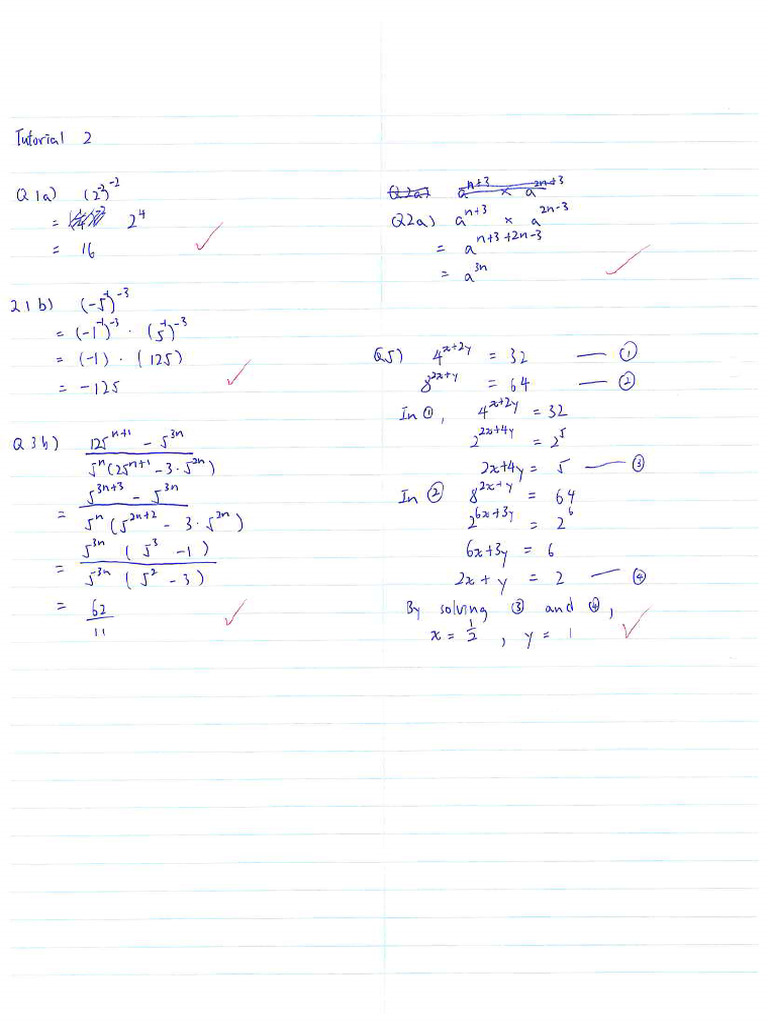 Tutorial 2
Q1a) (2⁻²)⁻²
= 2⁴
= 16
Q1b) (-5⁻¹)⁻³
= (-1⁻¹)⁻³ · (5⁻¹)⁻³
= (-1) · (125)
= -125
Q3h) (125ⁿ⁺¹ - 5³ⁿ) / (5ⁿ(25ⁿ⁺¹ - 3 · 5²ⁿ))
= (5³ⁿ⁺³ - 5³ⁿ) / (5ⁿ(5²ⁿ⁺² - 3 · 5²ⁿ))
= (5³ⁿ(5³ - 1)) / (5³ⁿ(5² - 3))
= 62/11
Q2a) aⁿ⁺³ × a²ⁿ⁺³
Q2a) aⁿ⁺³ × a²ⁿ⁻³
= aⁿ⁺³⁺²ⁿ⁻³
= a³ⁿ
Q5) 4^(x+2y) = 32 — ①
8^(2x+y) = 64 — ②
In ①, 4^(x+2y) = 32
2^(2x+4y) = 2⁵
2x+4y = 5 — ③
In ② 8^(2x+y) = 64
2^(6x+3y) = 2⁶
6x+3y = 6
2x+y = 2 — ④
By solving ③ and ④,
x = 1/2, y = 1